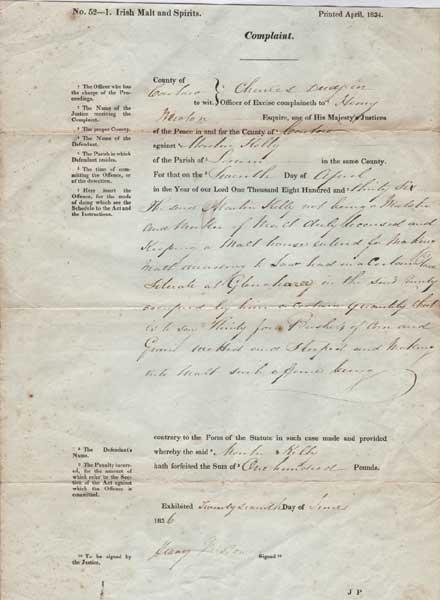 No. 52—1. Irish Malt and Spirits.
Printed April, 1834.
Complaint.
County of
Carlow } Charles
to wit. Officer of Excise complaineth to Henry
Newton Esquire, one of His Majesty's Justices
of the Peace in and for the County of Carlow
against Martin Kelly
of the Parish of in the same County.
For that on the Seventh Day of April
in the Year of our Lord One Thousand Eight Hundred and thirty six
He said Martin Kelly not being a Maltster
and Maker of Malt duly licensed and
Keeping a Malt house entered for Making
Malt according to Law had in a Certain
Situate at in the said County
occupied by him a certain quantity that
is to say Thirty four Bushels of Corn and
Grain wetted and Steeped and Making
into Malt such offence being
contrary to the Form of the Statute in such case made and provided
whereby the said Martin Kelly
hath forfeited the Sum of One hundred Pounds.
Exhibited Twenty seventh Day of June
1836
Henry Newton Signed
J P
The Officer who has
the charge of the Pro-
ceedings.
The Name of the
Justice receiving the
Complaint.
The proper County.
The Name of the
Defendant.
The Parish in which
Defendant resides.
The time of com-
mitting the Offence, or
of the detection.
Here insert the
Offence, for the mode
of doing which see the
Schedule to the Act and
the Instructions.
The Defendant's
Name.
The Penalty incur-
red, for the amount of
which refer to the Sec-
tion of the Act against
which the Offence is
committed.
To be signed by
the Justice.